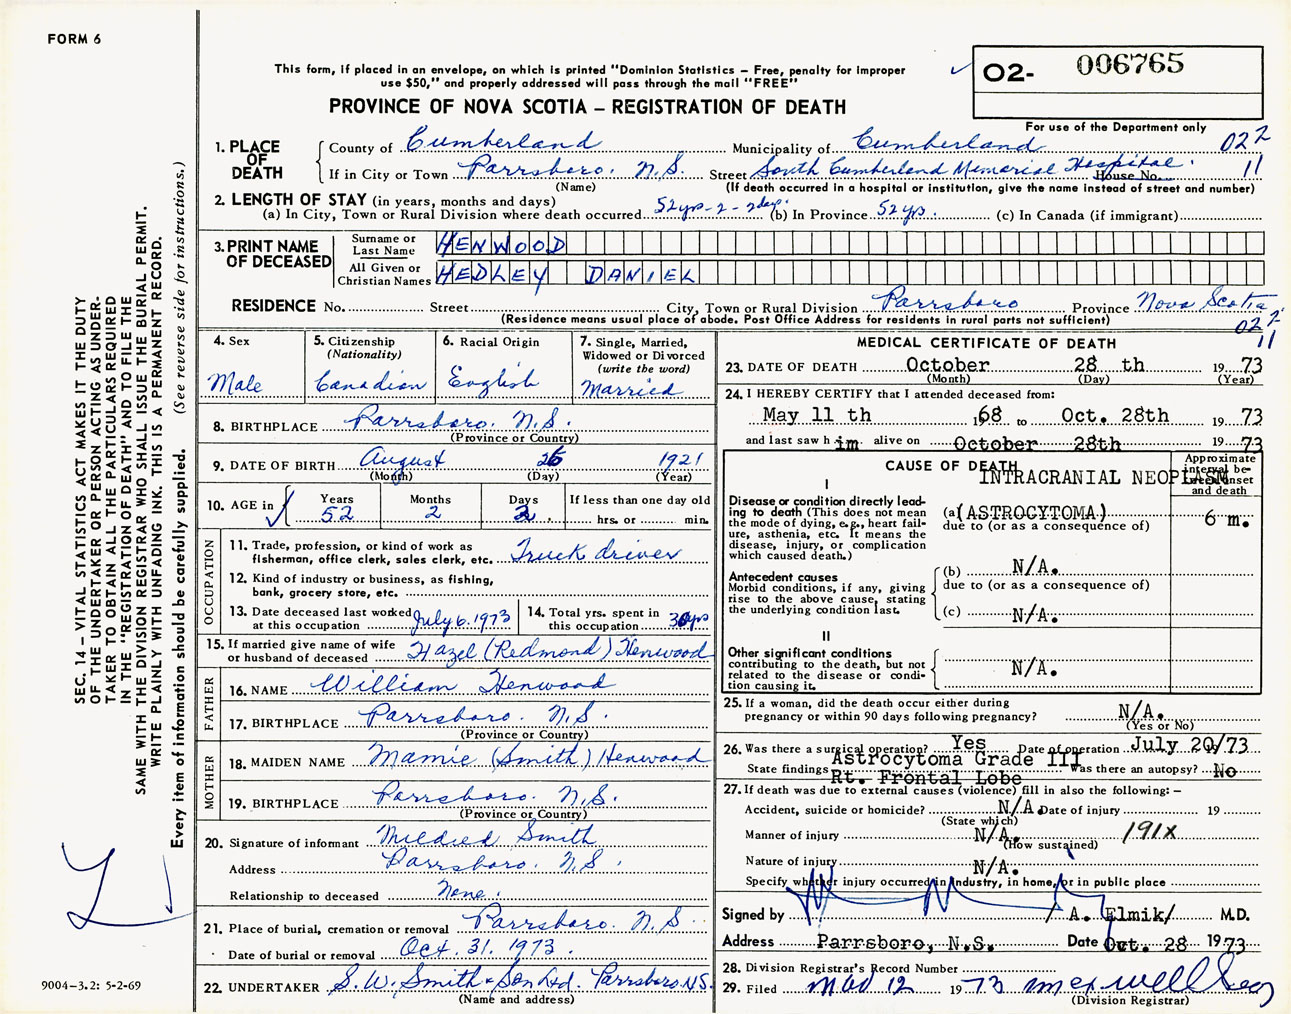 FORM 6
This form, if placed in an envelope, on which is printed "Dominion Statistics – Free, penalty for improper
use $50," and properly addressed will pass through the mail "FREE"
PROVINCE OF NOVA SCOTIA – REGISTRATION OF DEATH
O2- 006765
For use of the Department only
022
11
1. PLACE OF DEATH
County of Cumberland Municipality of Cumberland
If in City or Town Parrsboro. N.S. Street South Cumberland Memorial Hospital. House No.
(Name) (If death occurred in a hospital or institution, give the name instead of street and number)
2. LENGTH OF STAY (in years, months and days)
(a) In City, Town or Rural Division where death occurred 52yrs-2-2days (b) In Province 52yrs. (c) In Canada (if immigrant)
3. PRINT NAME OF DECEASED
Surname or Last Name HENWOOD
All Given or Christian Names HEDLEY DANIEL
RESIDENCE No. Street City, Town or Rural Division Parrsboro Province Nova Scotia
(Residence means usual place of abode. Post Office Address for residents in rural parts not sufficient)
022
11
4. Sex
Male
5. Citizenship
(Nationality)
Canadian
6. Racial Origin
English
7. Single, Married,
Widowed or Divorced
(write the word)
Married
8. BIRTHPLACE Parrsboro. N.S.
(Province or Country)
9. DATE OF BIRTH August 26 1921
(Month) (Day) (Year)
10. AGE in Years Months Days If less than one day old
52 2 2 hrs. or min.
OCCUPATION
11. Trade, profession, or kind of work as
fisherman, office clerk, sales clerk, etc. Truck driver
12. Kind of industry or business, as fishing,
bank, grocery store, etc.
13. Date deceased last worked
at this occupation July 6. 1973
14. Total yrs. spent in
this occupation 30yrs
15. If married give name of wife
or husband of deceased Hazel (Redmond) Henwood
FATHER
16. NAME William Henwood
17. BIRTHPLACE Parrsboro. N.S.
(Province or Country)
MOTHER
18. MAIDEN NAME Mamie (Smith) Henwood
19. BIRTHPLACE Parrsboro. N.S.
(Province or Country)
20. Signature of informant Mildred Smith
Address Parrsboro. N.S.
Relationship to deceased None.
21. Place of burial, cremation or removal Parrsboro. N.S
Date of burial or removal Oct. 31. 1973.
22. UNDERTAKER S.W. Smith & Son Ltd. Parrsboro N.S.
(Name and address)
MEDICAL CERTIFICATE OF DEATH
23. DATE OF DEATH October 28 th 1973
(Month) (Day) (Year)
24. I HEREBY CERTIFY that I attended deceased from:
May 11 th 1968 to Oct. 28th 1973
and last saw him alive on October 28th 1973
CAUSE OF DEATH
Approximate interval between onset and death
INTRACRANIAL NEOPLASM
I
Disease or condition directly leading to death (This does not mean the mode of dying, e.g., heart failure, asthenia, etc. It means the disease, injury, or complication which caused death.)
(a) (ASTROCYTOMA) 6 m.
due to (or as a consequence of)
Antecedent causes
Morbid conditions, if any, giving rise to the above cause, stating the underlying condition last.
(b) N/A.
due to (or as a consequence of)
(c) N/A.
II
Other significant conditions
contributing to the death, but not related to the disease or condition causing it.
N/A.
25. If a woman, did the death occur either during
pregnancy or within 90 days following pregnancy? N/A.
(Yes or No)
26. Was there a surgical operation? Yes Date of operation July 20/73
State findings Astrocytoma Grade III Was there an autopsy? No
Rt. Frontal Lobe
27. If death was due to external causes (violence) fill in also the following: –
Accident, suicide or homicide? N/A. Date of injury 19
(State which)
Manner of injury N/A. 191X
(How sustained)
Nature of injury N/A.
Specify whether injury occurred in industry, in home, or in public place
Signed by /A. Elmik/ M.D.
Address Parrsboro, N.S. Date Oct. 28 1973
28. Division Registrar's Record Number
29. Filed Nov 12 1973
(Division Registrar)
SEC. 14 – VITAL STATISTICS ACT MAKES IT THE DUTY
OF THE UNDERTAKER OR PERSON ACTING AS UNDER-
TAKER TO OBTAIN ALL THE PARTICULARS REQUIRED
IN THE "REGISTRATION OF DEATH" AND TO FILE THE
SAME WITH THE DIVISION REGISTRAR WHO SHALL ISSUE THE BURIAL PERMIT.
WRITE PLAINLY WITH UNFADING INK. THIS IS A PERMANENT RECORD.
Every item of information should be carefully supplied. (See reverse side for instructions.)
9004–3.2: 5-2-69